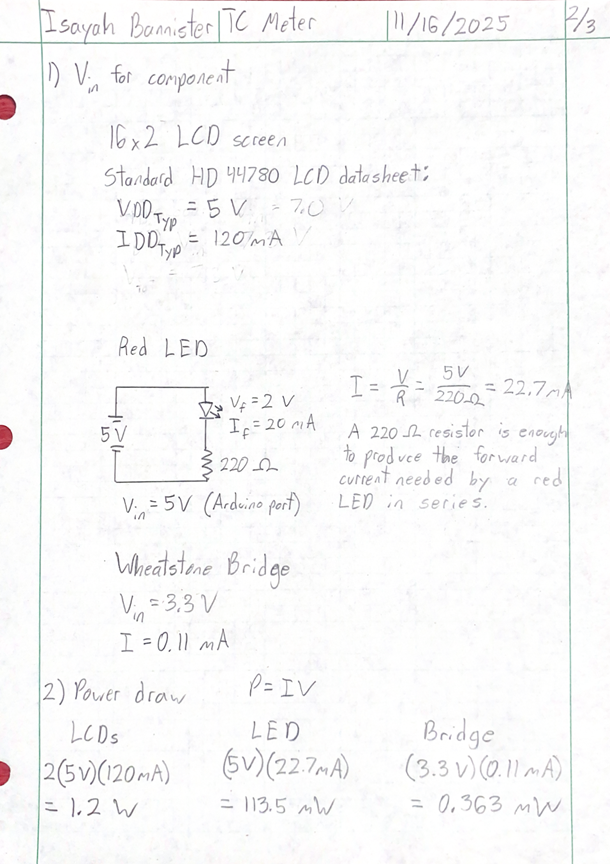 Isayah Bannister TC Meter 11/16/2025 2/3
1) Vin for component
16x2 LCD screen
Standard HD 44780 LCD datasheet:
VDDTyp = 5 V = 7.0 V
IDDTyp = 120 mA V
Red LED
5 V
Vf = 2 V
If = 20 mA
220 Ω
Vin = 5V (Arduino port)
I = V/R = 5V/220Ω = 22.7mA
A 220 Ω resistor is enough
to produce the forward
current needed by a red
LED in series.
Wheatstone Bridge
Vin = 3.3 V
I = 0.11 mA
2) Power draw P = IV
LCDs LED Bridge
2(5V)(120mA) (5V)(22.7mA) (3.3 V)(0.11 mA)
= 1.2 W = 113.5 mW = 0.363 mW